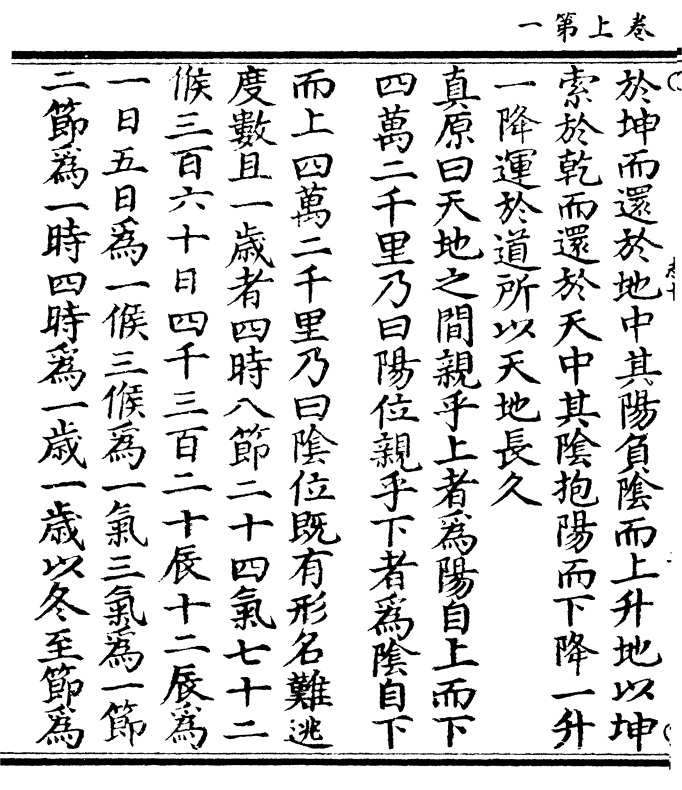 卷上第一
於坤而還於地中其陽負陰而上升地以坤
索於乾而還於天中其陰抱陽而下降一升
一降運於道所以天地長久
真原曰天地之間親乎上者為陽自上而下
四萬二千里乃曰陽位親乎下者為陰自下
而上四萬二千里乃曰陰位既有形名難逃
度數且一歲者四時八節二十四氣七十二
候三百六十日四千三百二十辰十二辰為
一日五日為一候三候為一氣三氣為一節
二節為一時四時為一歲一歲以冬至節為